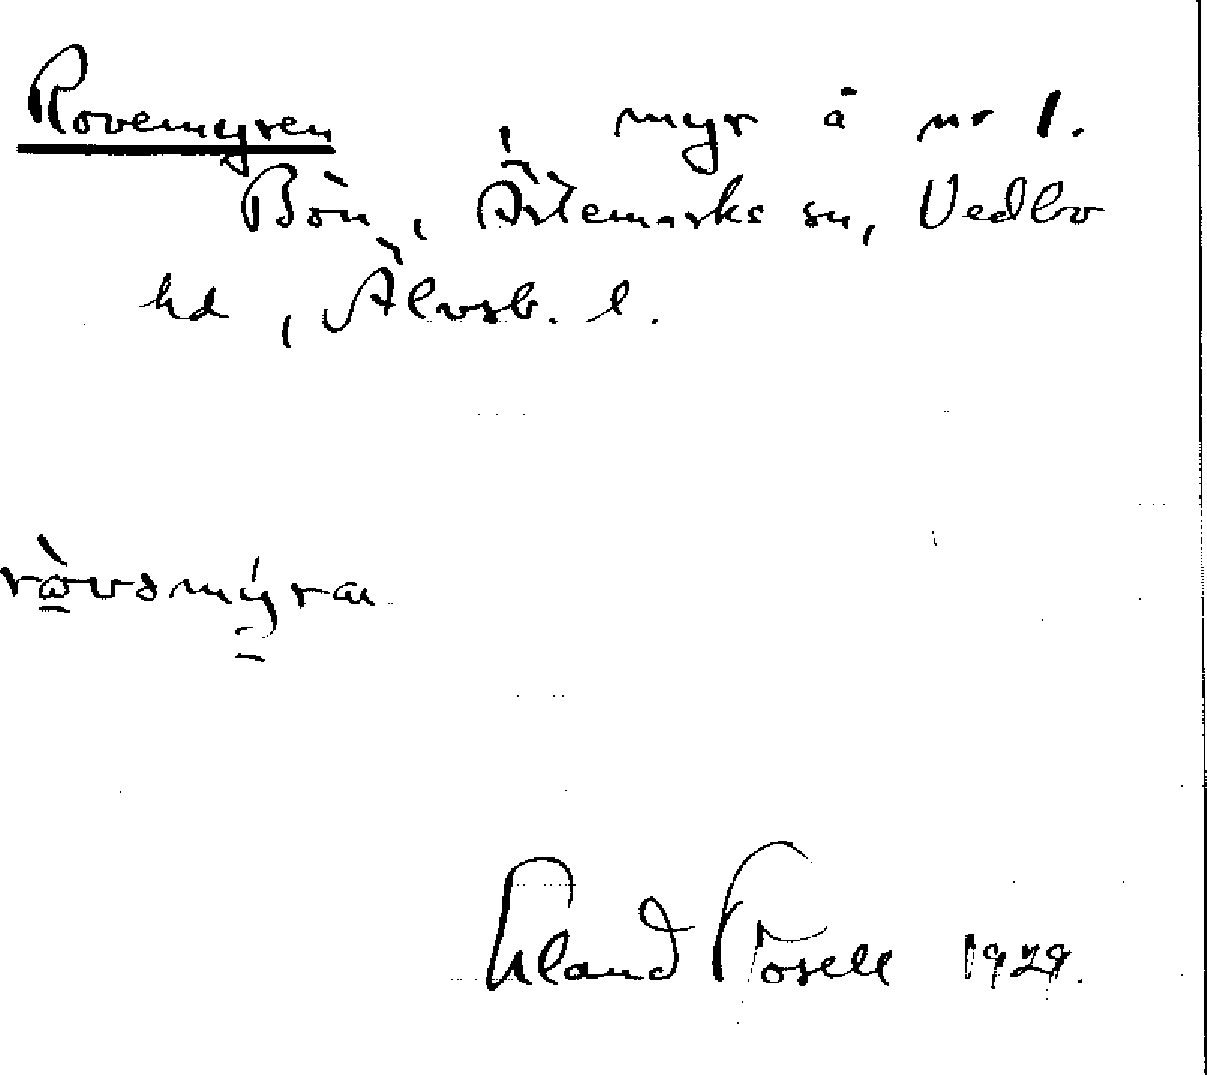 Rovemyren, myr å nr 1.
Bön, Ärtemarks sn, Vedbo
hd, Älvsb. l.
Erland Rosell 1929.